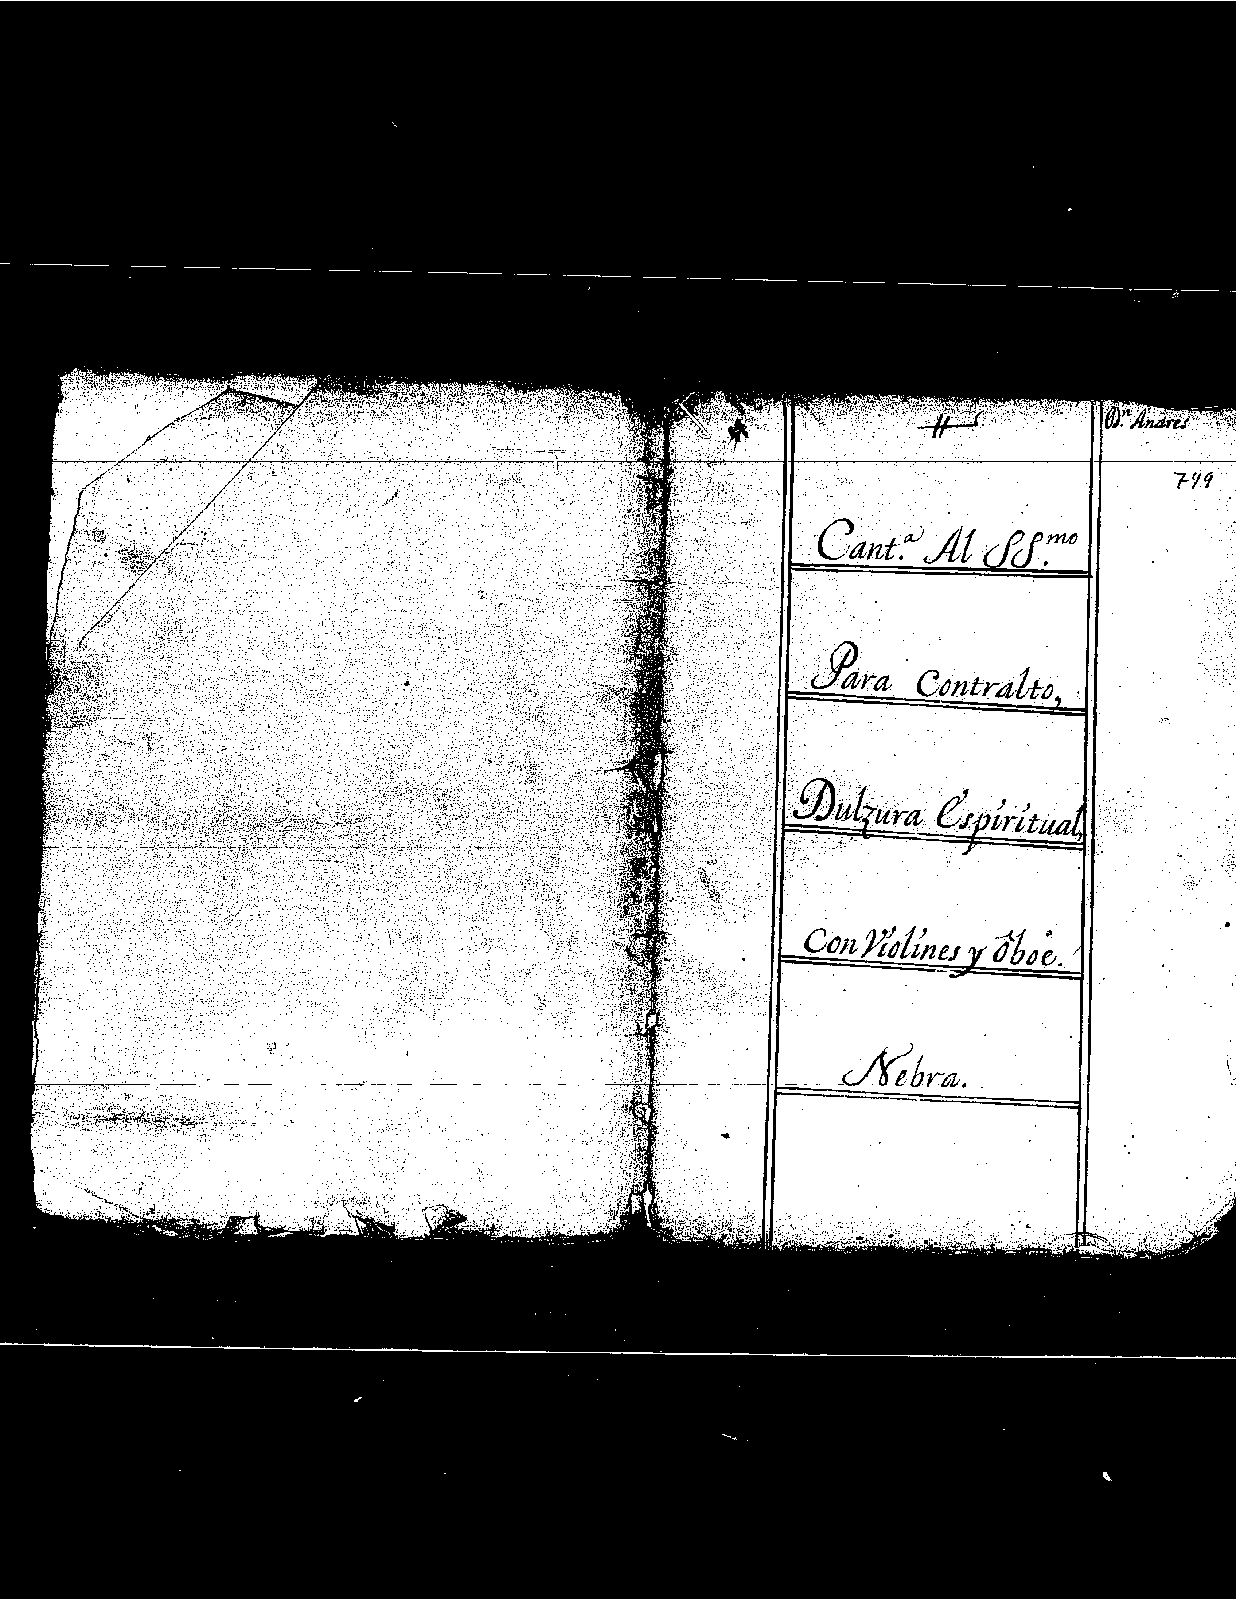 D.ⁿ Andres
749
Cant.ª Al SS.ᵐᵒ
Para Contralto,
Dulzura Espiritual,
Con Violines y Oboè.
Nebra.